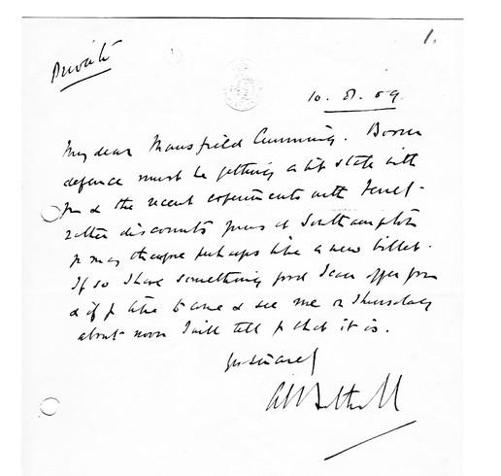 Private
1.
10. 8. 09.
My dear Mansfield Cumming. Boom
defence must be getting a bit stale with
you & the recent experiments with Ferret
rather discounts yours at Southampton
you may therefore perhaps like a new billet.
If so I have something good I can offer you
& if you like to come & see me on Thursday
about noon I will tell you what it is.
Yrs sincerely
A E Bethell